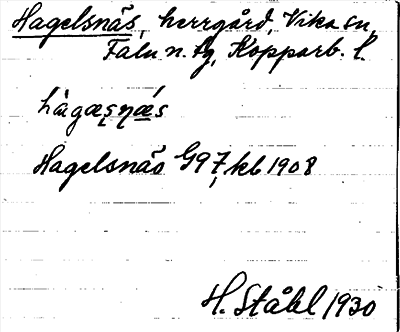 Hagelsnäs, herrgård, Vika sn,
Falu n. tg, Kopparb. l.
hàgæsnǽs
Hagelsnäs G97, kb 1908
H. Ståhl 1930